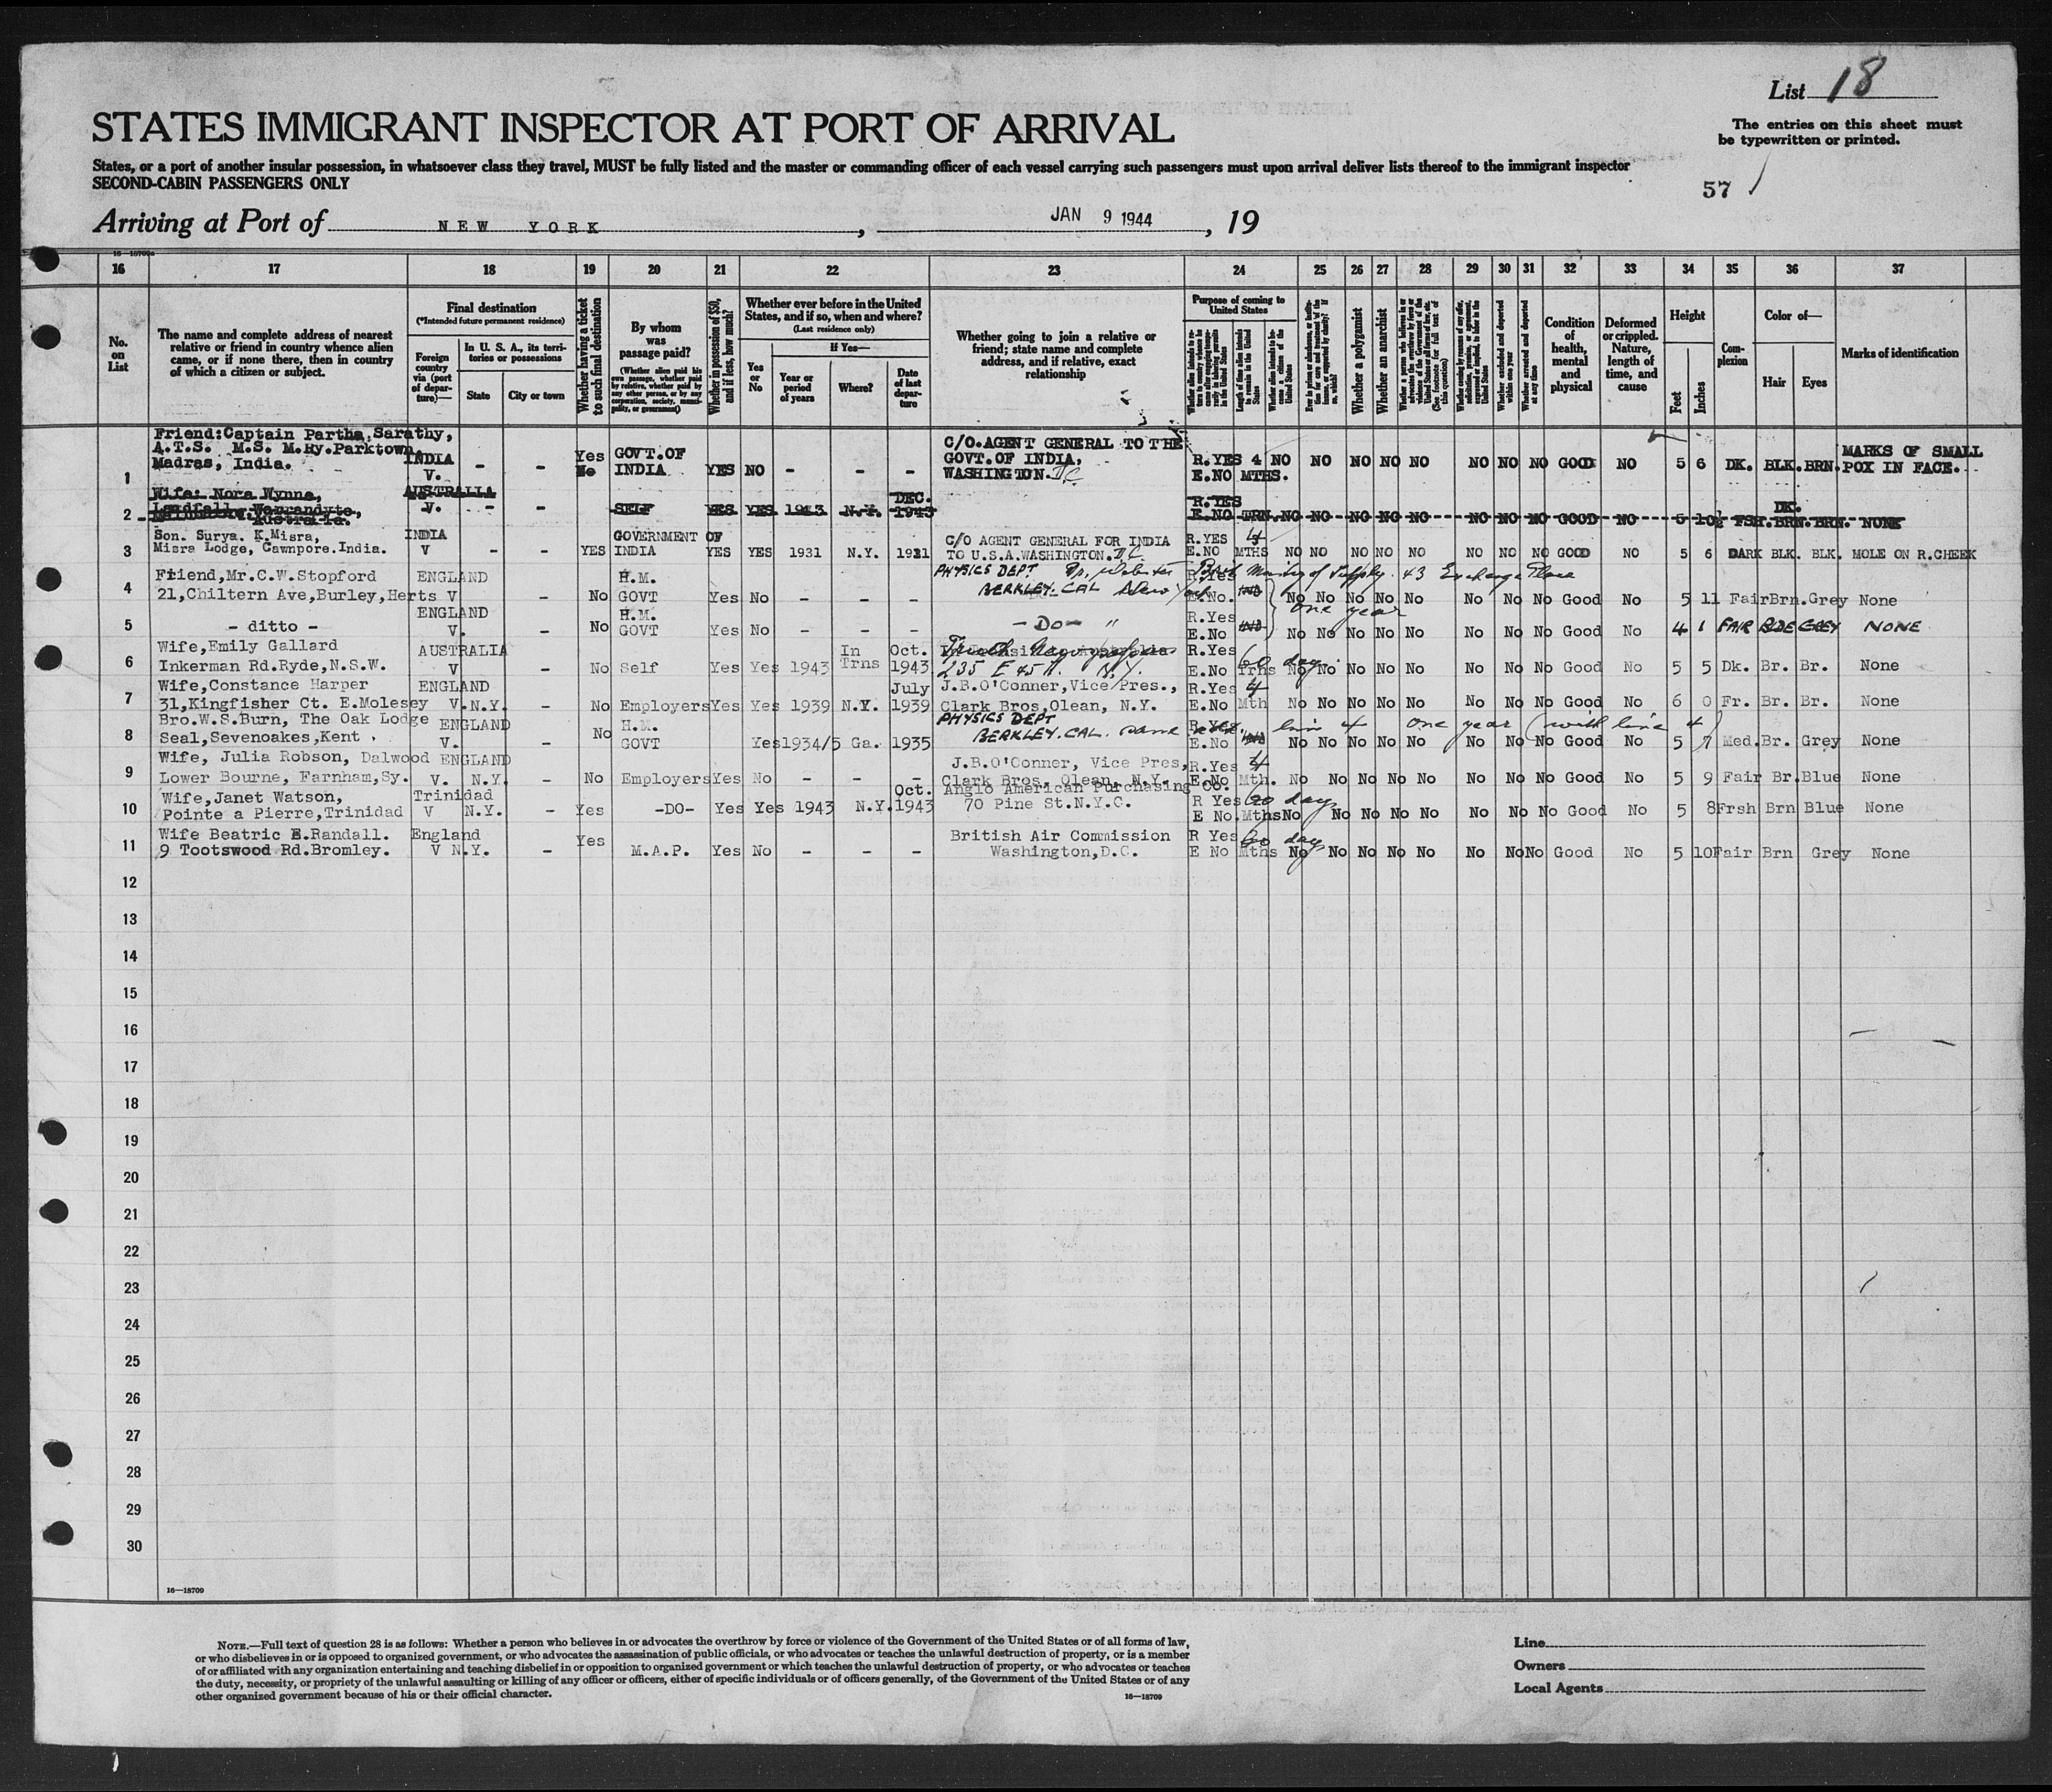 List 18
STATES IMMIGRANT INSPECTOR AT PORT OF ARRIVAL
The entries on this sheet must
be typewritten or printed.
States, or a port of another insular possession, in whatsoever class they travel, MUST be fully listed and the master or commanding officer of each vessel carrying such passengers must upon arrival deliver lists thereof to the immigrant inspector
SECOND-CABIN PASSENGERS ONLY
57
Arriving at Port of NEW YORK, JAN 9 1944, 19
16 17 18 19 20 21 22 23 24 25 26 27 28 29 30 31 32 33 34 35 36 37
No. on List
The name and complete address of nearest relative or friend in country whence alien came, or if none there, then in country of which a citizen or subject.
Final destination
(*Intended future permanent residence)
Foreign country via (port of departure)—
In U. S. A., its territories or possessions
State
City or town
Whether having a ticket to such final destination
By whom was passage paid?
(Whether alien paid his own passage, whether paid by relative, whether paid by any other person, or by any corporation, society, municipality, or government)
Whether in possession of $50, and if less, how much?
Whether ever before in the United States, and if so, when and where?
(Last residence only)
If Yes—
Yes or No
Year or period of years
Where?
Date of last departure
Whether going to join a relative or friend; state name and complete address, and if relative, exact relationship
Purpose of coming to United States
Whether a polygamist
Whether an anarchist
Condition of health, mental and physical
Deformed or crippled. Nature, length of time, and cause
Height
Feet
Inches
Complexion
Color of—
Hair
Eyes
Marks of identification
1 Friend:Captain Partha Sarathy, A.T.S. M.S. M.Ry.Parktown, Madras, India. INDIA V. - - Yes No GOVT.OF INDIA YES NO - - - C/O.AGENT GENERAL TO THE GOVT.OF INDIA, WASHINGTON. DC R.YES E.NO 4 MTHS. NO NO NO NO NO NO NO NO GOOD NO 5 6 DK. BLK. BRN. MARKS OF SMALL POX IN FACE.
2 Wife: Nora Wynne, Warrandyte, Australia. AUSTRALIA V. - - SELF YES YES 1943 N.Y. DEC. 1943 R.YES E.NO TRN. NO NO NO NO NO NO NO NO GOOD NO 5 10½ FSH. DK. BRN. BRN. NONE
3 Son. Surya. K.Misra, Misra Lodge, Cawnpore.India. INDIA V - - YES GOVERNMENT OF INDIA YES YES 1931 N.Y. 1931 C/O AGENT GENERAL FOR INDIA TO U.S.A.WASHINGTON. DC R.YES E.NO 4 MTHS NO NO NO NO NO NO NO NO GOOD NO 5 6 DARK BLK. BLK. MOLE ON R.CHEEK
4 Friend,Mr.C.W.Stopford 21,Chiltern Ave,Burley,Herts ENGLAND V - No H.M. GOVT Yes No - - - PHYSICS DEPT BERKLEY. CAL Dr. Webster Brit Ministry of Supply. 43 Exchange Place New York R.Yes E.No. No No No No No No No No Good No 5 11 Fair Brn. Grey None
5 - ditto - ENGLAND V. - No H.M. GOVT Yes No - - - - Do - " R.Yes E.No one year No No No No No No No No Good No 4 1 FAIR GREY NONE
6 Wife,Emily Gallard Inkerman Rd.Ryde,N.S.W. AUSTRALIA V - No Self Yes Yes 1943 In Trns Oct. 1943 235 E 45 N.Y. R.Yes E.No Trns 60 days No No No No No No No No Good No 5 5 Dk. Br. Br. None
7 Wife,Constance Harper 31,Kingfisher Ct. E.Molesey ENGLAND V.N.Y. - No Employers Yes Yes 1939 N.Y. July 1939 J.B.O'Conner,Vice Pres., Clark Bros,Olean, N.Y. R.Yes E.No 4 Mth No No No No No No No No Good No 6 0 Fr. Br. Br. None
8 Bro.W.S.Burn, The Oak Lodge Seal,Sevenoakes,Kent ENGLAND V. - No H.M. GOVT Yes 1934/5 Ga. 1935 PHYSICS DEPT BERKLEY. CAL. same line 4 one year (with line 4) E.No No No No No No No No No Good No 5 7 Med. Br. Grey None
9 Wife, Julia Robson, Dalwood Lower Bourne, Farnham,Sy. ENGLAND V. N.Y. - No Employers Yes No - - - J.B.O'Conner, Vice Pres, Clark Bros, Olean, N.Y. R.Yes E.No 4 Mth. No No No No No No No No Good No 5 9 Fair Br. Blue None
10 Wife,Janet Watson, Pointe a Pierre,Trinidad Trinidad V N.Y. - Yes -DO- Yes Yes 1943 N.Y. Oct. 1943 Anglo American Purchasing Co. 70 Pine St.N.Y.C. R Yes E No. 60 days Mths No No No No No No No No Good No 5 8 Frsh Brn Blue None
11 Wife Beatric E.Randall. 9 Tootswood Rd.Bromley. England V N.Y. - Yes M.A.P. Yes No - - - British Air Commission Washington,D.C. R Yes E No 60 days Mths No No No No No No No No Good No 5 10 Fair Brn Grey None
12
13
14
15
16
17
18
19
20
21
22
23
24
25
26
27
28
29
30
16—18709
NOTE.—Full text of question 28 is as follows: Whether a person who believes in or advocates the overthrow by force or violence of the Government of the United States or of all forms of law,
or who disbelieves in or is opposed to organized government, or who advocates the assassination of public officials, or who advocates or teaches the unlawful destruction of property, or is a member
of or affiliated with any organization entertaining and teaching disbelief in or opposition to organized government or which teaches the unlawful destruction of property, or who advocates or teaches
the duty, necessity, or propriety of the unlawful assaulting or killing of any officer or officers, either of specific individuals or of officers generally, of the Government of the United States or of any
other organized government because of his or their official character.
16—18709
Line
Owners
Local Agents